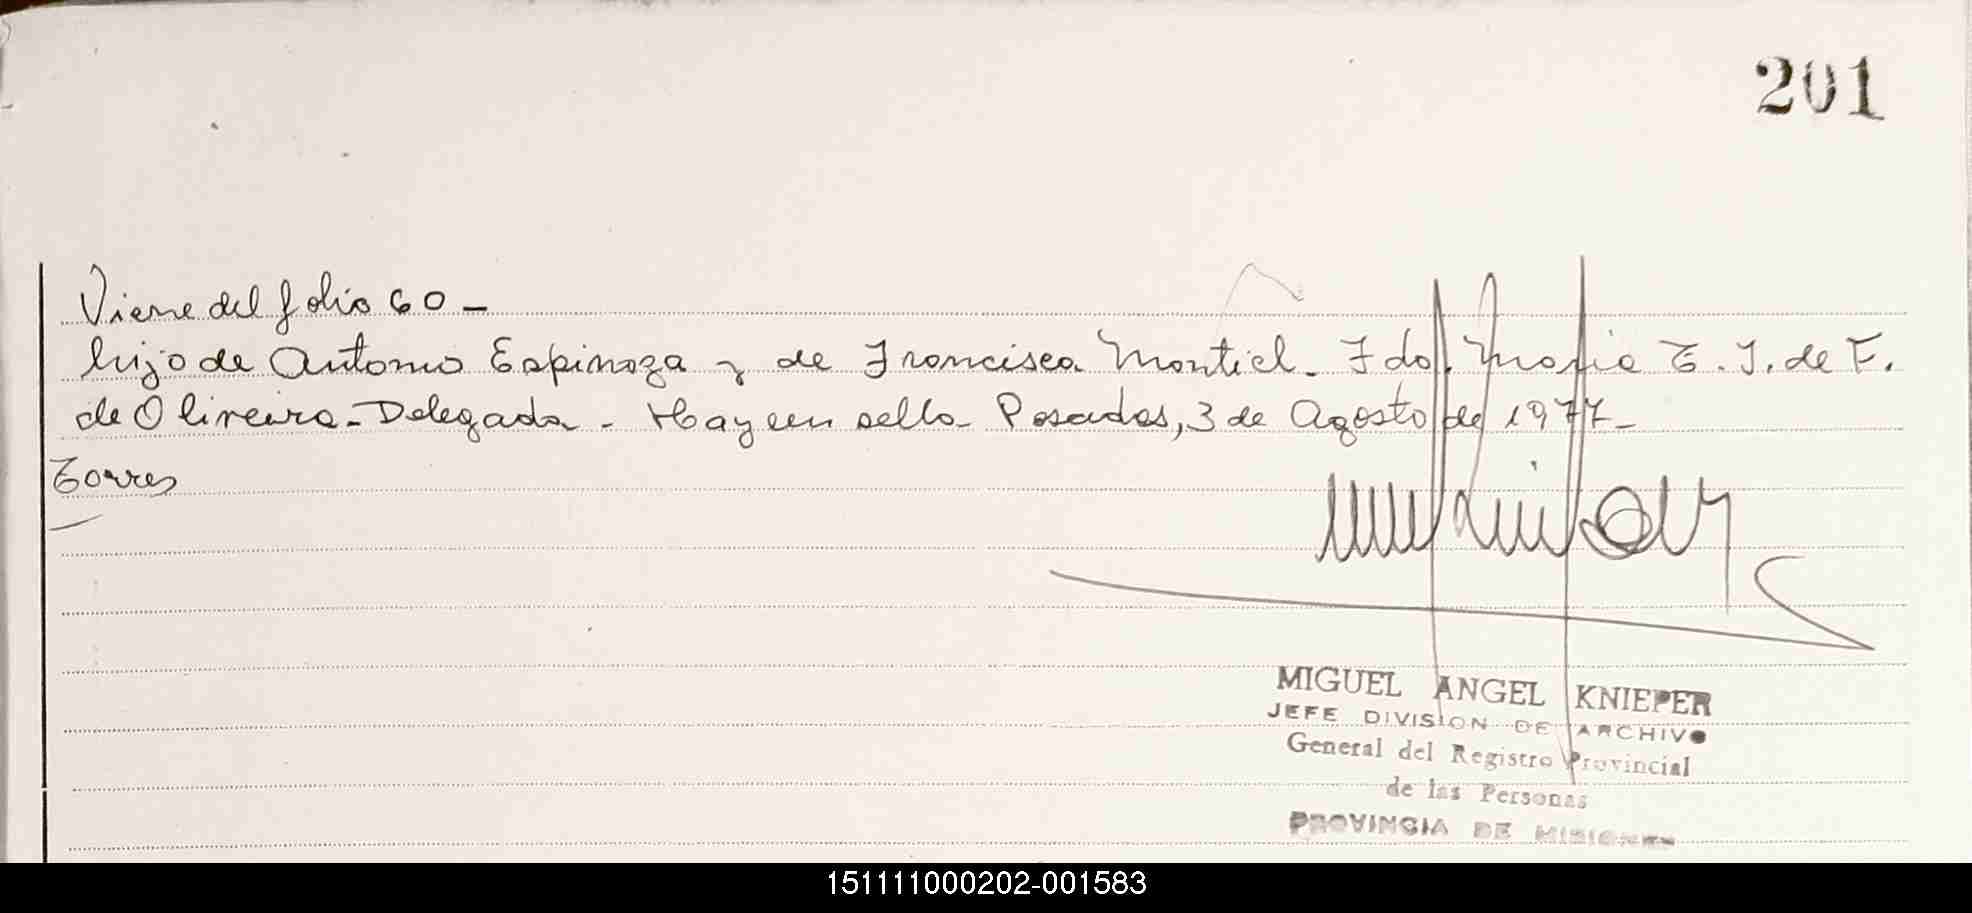 201
Viene del folio 60 -
hijo de Antonio Espinoza y de Francisca Montiel. Fdo. Maria E. J. de F.
de Oliveira - Delegada - Hay un sello - Posadas, 3 de Agosto de 1977 -
Torres
MIGUEL ANGEL KNIEPER
JEFE DIVISION DE ARCHIVO
General del Registro Provincial
de las Personas
PROVINCIA DE MISIONES
151111000202-001583